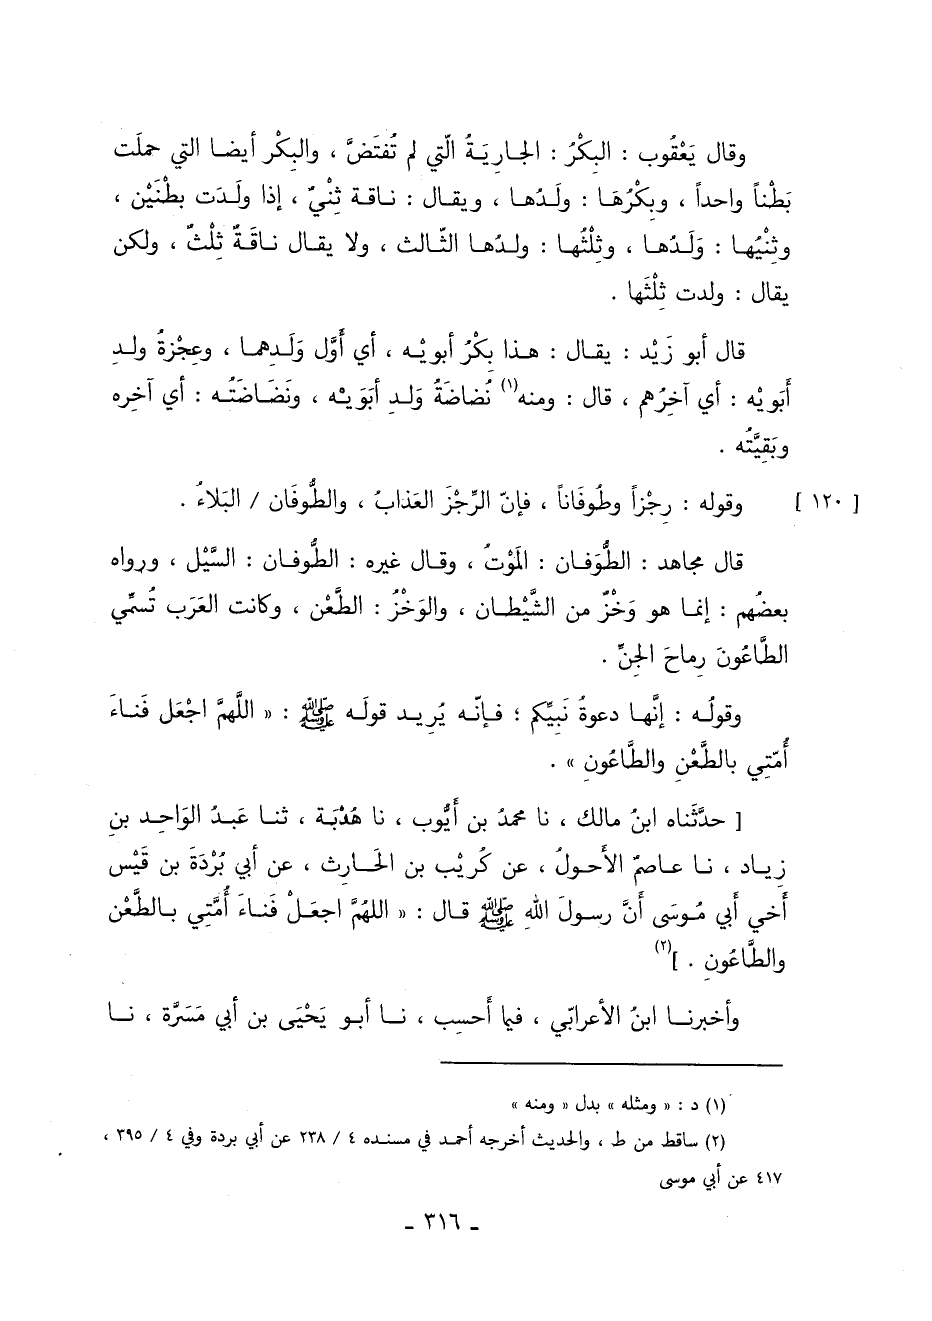 وقال يَعْقُوب : البِكْرُ : الجاريَةُ الّتي لم تُفتَضَّ ، والبِكْر أيضا التي حملَت
بَطْناً واحداً ، وبِكْرُهَا : ولَدُها ، ويقال : ناقة ثِنْيٌ ، إذا ولَدَت بطْنَيْن ،
وثِنْيُها : وَلَدُها ، وثِلْثُها : ولدُها الثّالث ، ولا يقال ناقَةٌ ثِلْثٌ ، ولكن
يقال : ولدت ثِلْثَها .
قال أبو زَيْد : يقال : هذا بِكْرُ أبويْه ، أي أَوَّل وَلَدهما ، وعِجْزةُ ولدِ
أَبَويْه : أي آخِرُهم ، قال : ومنه(١) نُضاضَةُ وَلدِ أبَوَيْه ، ونَضَاضَتُه : أي آخِره
وبَقِيَّتُه .
[ ١٢٠ ] وقوله : رِجْزاً وطُوفَاناً ، فإنّ الرِّجْزَ العَذابُ ، والطُّوفَان / البَلاءُ .
قال مجاهد : الطُّوَفان : المَوْتُ ، وقال غيره : الطُّوفان : السَّيْل ، ورواه
بعضُهم : إنما هو وَخْزٌ من الشَّيْطان ، والوَخْزُ : الطَّعْن ، وكانت العَرَب تُسمِّي
الطَّاعُونَ رِماحَ الجِنِّ .
وقولُه : إنَّها دعوةُ نَبيِّكم ؛ فإنّه يُرِيد قولَه ﷺ : « اللَّهمَّ اجْعَل فَناءَ
أُمّتِي بالطَّعْنِ والطَّاعُونِ » .
[ حدَّثناه ابنُ مالك ، نا محمدُ بن أَيُّوب ، نا هُدْبَة ، ثنا عَبدُ الوَاحِد بنِ
زِياد ، نا عاصمٌ الأَحولُ ، عن كُرَيْب بن الحَارث ، عن أبي بُرْدَةَ بن قَيْس
أخي أبي مُوسَى أنَّ رسولَ اللهِ ﷺ قال : « اللهُمَّ اجعَلْ فَناءَ أُمَّتِي بالطَّعْن
والطَّاعُونِ . ](٢)
وأخبرنا ابنُ الأعرابّي ، فيما أَحسِب ، نا أبو يَحْيَى بن أبي مَسَرَّة ، نا
(١) د : « ومثله » بدل « ومنه »
(٢) ساقط من ط ، والحديث أخرجه أحمد في مسنده ٤ / ٢٣٨ عن أبي بردة وفي ٤ / ٣٩٥ ،
٤١٧ عن أبي موسى
- ٣١٦ -